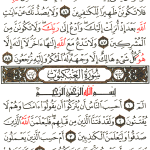 فَلَا تَكُونَنَّ ظَهِيرًا لِّلْكَٰفِرِينَ ۝ وَلَا يَصُدُّنَّكَ عَنْ ءَايَٰتِ
ٱللَّهِ بَعْدَ إِذْ أُنزِلَتْ إِلَيْكَ وَٱدْعُ إِلَىٰ رَبِّكَ وَلَا تَكُونَنَّ مِنَ
ٱلْمُشْرِكِينَ ۝ وَلَا تَدْعُ مَعَ ٱللَّهِ إِلَٰهًا ءَاخَرَ لَآ إِلَٰهَ إِلَّا
هُوَ كُلُّ شَىْءٍ هَالِكٌ إِلَّا وَجْهَهُۥ لَهُ ٱلْحُكْمُ وَإِلَيْهِ تُرْجَعُونَ ۝
سُورَةُ ٱلْعَنكَبُوتِ
بِسْمِ ٱللَّهِ ٱلرَّحْمَٰنِ ٱلرَّحِيمِ
الٓمٓ ۝ أَحَسِبَ ٱلنَّاسُ أَن يُتْرَكُوٓا۟ أَن يَقُولُوٓا۟ ءَامَنَّا وَهُمْ لَا
يُفْتَنُونَ ۝ وَلَقَدْ فَتَنَّا ٱلَّذِينَ مِن قَبْلِهِمْ فَلَيَعْلَمَنَّ ٱللَّهُ ٱلَّذِينَ
صَدَقُوا۟ وَلَيَعْلَمَنَّ ٱلْكَٰذِبِينَ ۝ أَمْ حَسِبَ ٱلَّذِينَ يَعْمَلُونَ